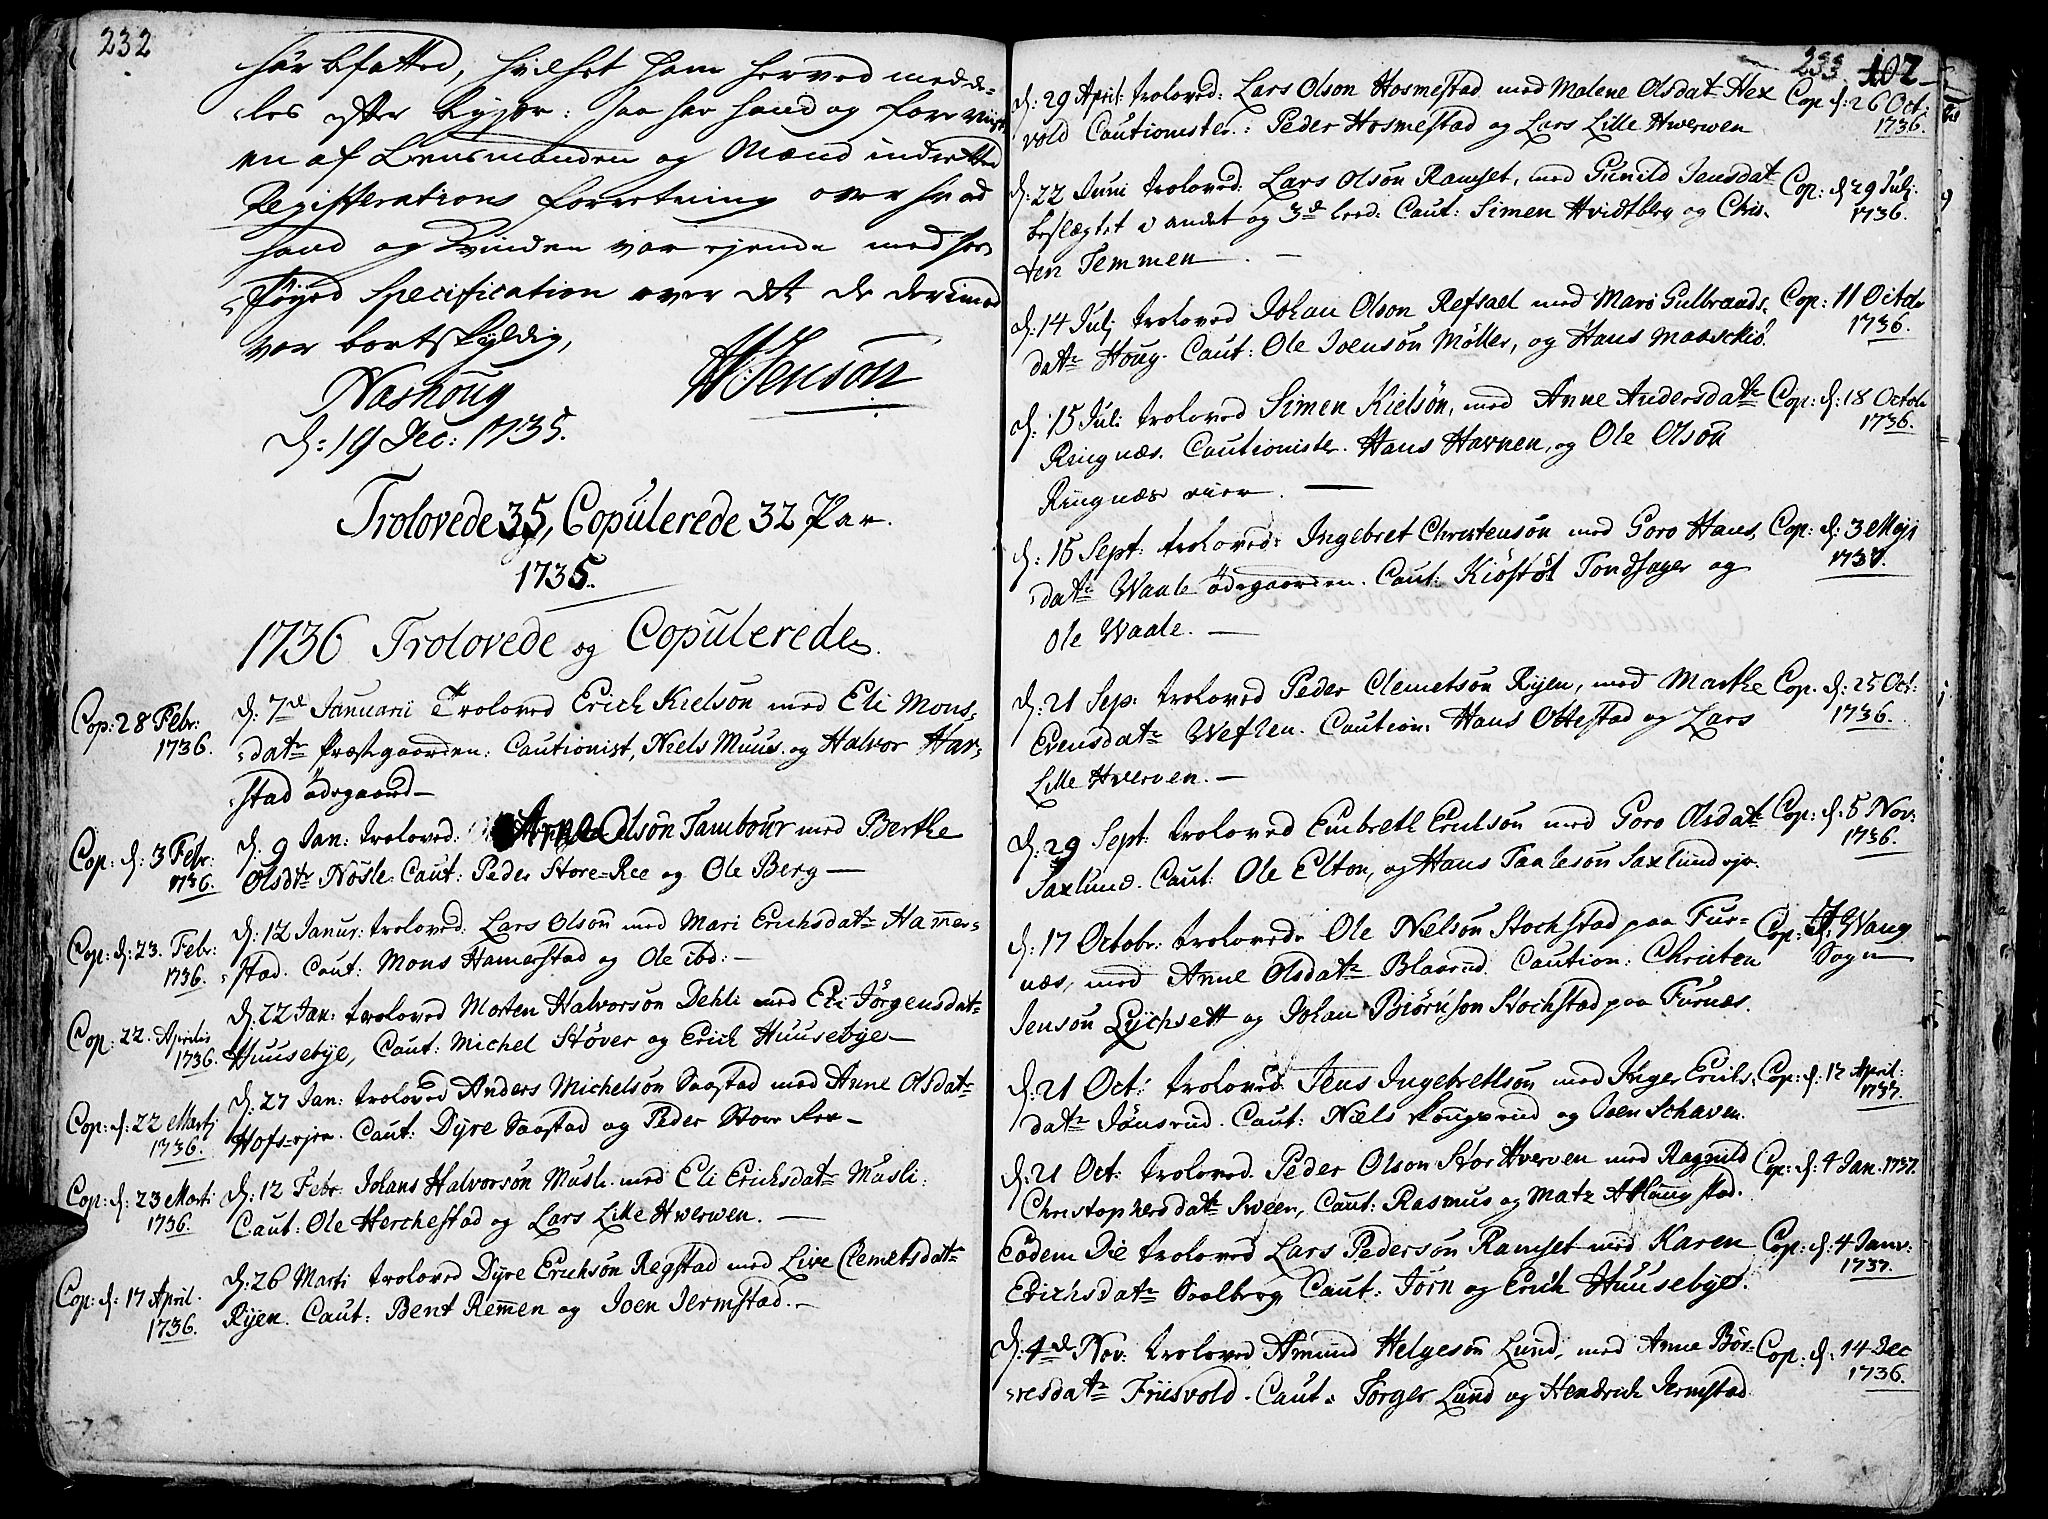 232
har befatted, hvilket ham herved medde-
les efter begjær: saa har hand og forevijst
en af Lensmanden og Mænd indrettet
Registerations forretning over hvad
hand og Qvinden var ejende med hos-
føyed Specification over det de derimod
var bortskyldig,
Naskoug
H: Jenson
d: 19 Dec: 1735.
Trolovede 35, Copulerede 32 Par.
1735.
1736 Trolovede og Copulerede.
Cop: 28 Febr:
1736.
d: 7de Januarii Troloved Erich Kielsön med Eli Mons-
datr Præstgaarden: Cautionist, Niels Muus og Halvor Har-
stad ödegaard—
Cop: d: 3 Febr:
1736.
d: 9 Jan: troloved: Arne Olsön Tambour med Berthe
Olsdtr Nösle. Caut: Peder Store-Ree og Ole Berg—
Cop: d: 23. Febr:
1736.
d: 12 Janur: troloved: Lars Olsön med Mari Erichsdatr Hamer-
stad. Caut: Mons Hamerstad og Ole ibd:—
Cop: 22. Aprilis
1736.
d: 22 Jan: troloved Morten Halvorsön Dehli med Eli Jörgensdatr
Huusebÿe, Caut: Michel Stöver og Erich Huusebÿe—
Cop: d: 22 Martj
1736.
d: 27 Jan: troloved Anders Michelsön Saastad med Anne Olsdatr
Hofs-ejer. Caut: Dÿre Saastad og Peder Store Ree—
Cop: d: 23 Marti
1736.
d: 12 Febr: Johans Halvorsön Musli med Eli Erichsdatr Musli.
Caut: Ole Herchestad og Lars Lille Hwerwen.—
Cop: d: 17 April.
1736.
d: 26 Marti troloved Dÿre Erichsön Regstad med Live Clemetsdatr
Rÿen. Caut: Bent Remen og Joen Jermstad.—
233 102
d: 29 April: troloved: Lars Olson Hosmestad med Malene Olsdatr Hex
vold Cautionister: Peder Hosmestad og Lars Lille Hwerwen
Cop d: 26 Oct:
1736.
d: 22 Juni troloved: Lars Olsön Ramset, med Gunild Jensdatr
beslægtet i andet og 3d leed: Caut: Simen Hvidtberg og Chris-
ten Temmen.—
Cop: d: 29 Julj:
1736.
d: 14 Julj troloved Johan Olson Refsael med Mari Gulbrands-
datr Houg. Caut: Ole Joensön Möller, og Hans
Cop: 11 Octobr
1736.
d: 15 Juli troloved Simen Kielsön, med Anne Andersdatr
Ringnæs. Cautionister. Hans Havnen, og Ole Olsön
Ringnæs eier.—
Cop: d: 18 Octobr
1736.
d: 15 Sept: troloved: Ingebret Christensön med Goro Hans-
datr Waale ödegaarden. Caut: Kiöstöl Tondsager og
Ole Waale.—
Cop: d: 3 Maji
1737.
d: 21 Sep: troloved Peder Clemetsön Rÿen, med Marthe
Evensdatr Weflen. Caution: Hans Ottestad og Lars
Lille Hverven.—
Cop. d: 25 Oct:
1736.
d: 29 Sept: troloved Embreth Erichsön med Goro Olsdatr
Saxlund. Caut: Ole Elton, og Hans Saxlundejr.
Cop: d: 5 Nov:
1736.
d: 17 Octobr: troloved Ole Nelsön Stochstad paa Fur-
næs, med Anne Olsdatr Blaarud. Caution: Christen
Jensön Lÿchsett og Johan Biörnson Stochstad paa Furnæs.
Cop: i Wang
Sogn
d: 21 Oct: troloved: Jens Ingebrethsön med Inger Erichs-
datr Jönsrud. Caut: Niels Kongsrud og Joen Schaven.
Cop: d: 12 April:
1737.
d: 21 Oct: troloved. Peder Olson Stor Hverven med Ragnild
Christophersdatr Sveen, Caut: Rasmus og Matz Aslaugstad.
Cop: d: 4 Jan. 1737.
Eodem Die troloved Lars Pedersön Ramset med Karen
Erichsdatr Soelberg Caut: Jörn og Erich Huusebÿe.
Cop: d: 4 Janv:
1737.
d: 4de Nov: troloved Amund Helgesön Lund, med Anne Bör-
resdatr Friisvold. Caut: Torger Lund og Hendrich Jermstad
Cop: d: 14 Dec
1736.